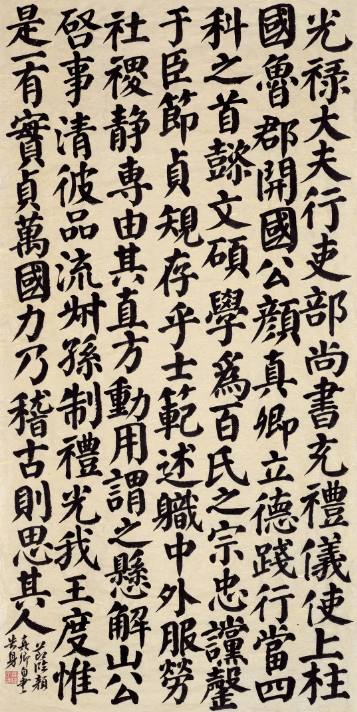 光祿大夫行吏部尚書充禮儀使上柱
國魯郡開國公顔真卿立德踐行當四
科之首懿文碩學爲百氏之宗忠讜罄
于臣節貞規存乎士範述職中外服勞
社稷静專由其直方動用謂之懸解山公
啓事清彼品流叔孫制禮光我王度惟
是一有實貞萬國力乃稽古則思其人
節臨顔
真卿自書
告身